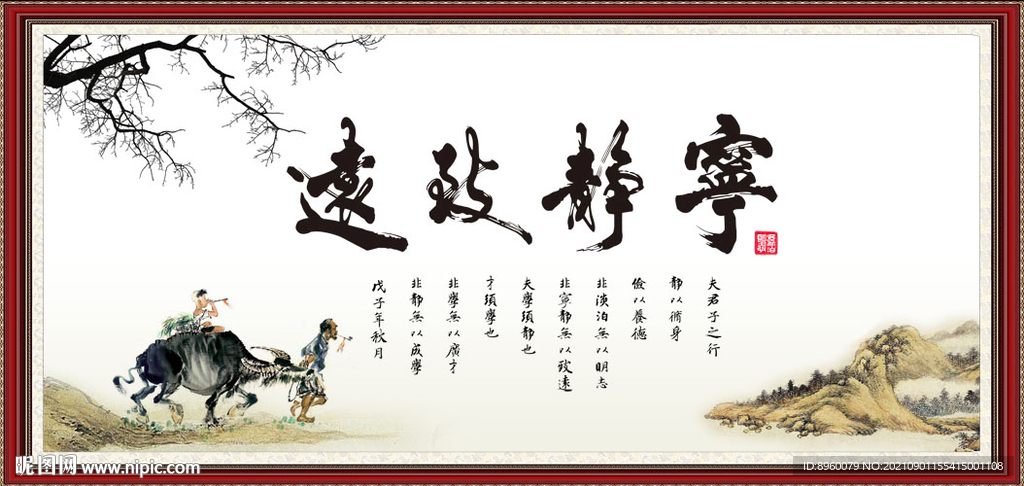 寧靜致遠
夫君子之行
靜以脩身
儉以養德
非淡泊無以明志
非寧靜無以致遠
夫學須靜也
才須學也
非學無以廣才
非靜無以成學
戊子年秋月
昵图网 www.nipic.com
ID:8960079 NO:20210901155415001108